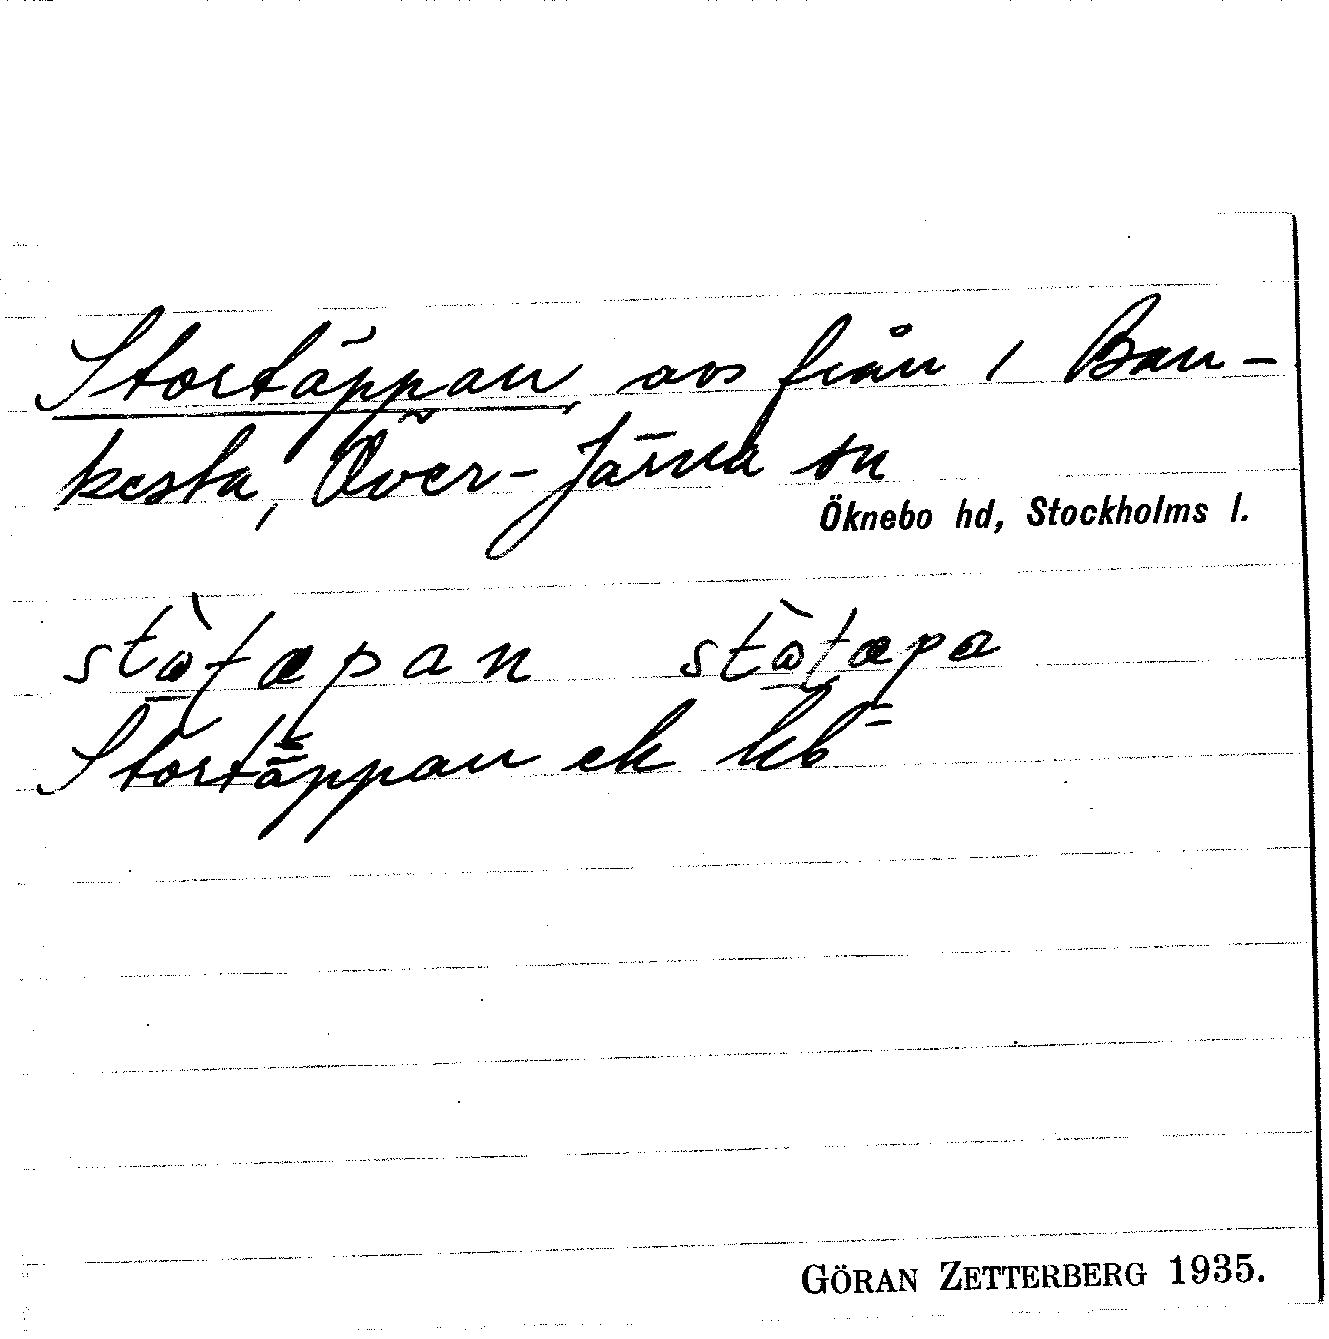 Stortäppan, avs från 1 Ban-
kesta, Över-Järna sn
Öknebo hd, Stockholms l.
stòtæpan stòtæpa
Stortäppan ek kb
GÖRAN ZETTERBERG 1935.